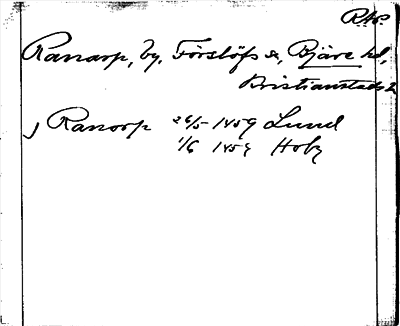 RAP.
Ranarp, by, Förslöfs sn, Bjäre hd,
Kristianstads l.
j Ranorp 26/5 1459 Lund
1/6 1459 Hoby